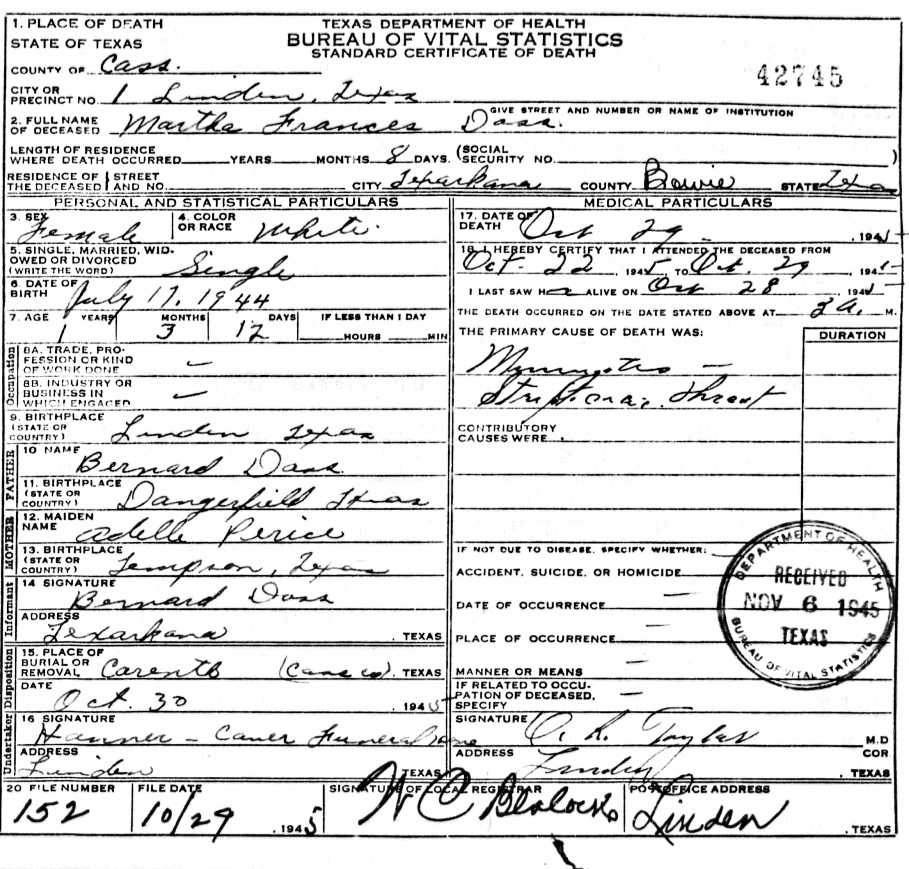 1. PLACE OF DEATH
STATE OF TEXAS
TEXAS DEPARTMENT OF HEALTH
BUREAU OF VITAL STATISTICS
STANDARD CERTIFICATE OF DEATH
42745
COUNTY OF Cass.
CITY OR PRECINCT NO. 1 Linden, Texas
GIVE STREET AND NUMBER OR NAME OF INSTITUTION
2. FULL NAME OF DECEASED Martha Frances Doss.
LENGTH OF RESIDENCE WHERE DEATH OCCURRED YEARS MONTHS 8 DAYS. (SOCIAL SECURITY NO. )
RESIDENCE OF THE DECEASED STREET AND NO. CITY Texarkana COUNTY Bowie STATE Texas
PERSONAL AND STATISTICAL PARTICULARS
3. SEX Female 4. COLOR OR RACE White.
5. SINGLE, MARRIED, WIDOWED OR DIVORCED (WRITE THE WORD) Single
6 DATE OF BIRTH July 17, 1944
7. AGE 1 YEARS 3 MONTHS 12 DAYS IF LESS THAN 1 DAY HOURS MIN
Occupation
8A. TRADE, PROFESSION OR KIND OF WORK DONE —
8B. INDUSTRY OR BUSINESS IN WHICH ENGAGED —
9. BIRTHPLACE (STATE OR COUNTRY) Linden Texas
FATHER
10 NAME Bernard Doss.
11. BIRTHPLACE (STATE OR COUNTRY) Dangerfield Texas
MOTHER
12. MAIDEN NAME Adelle
13. BIRTHPLACE (STATE OR COUNTRY) Tempson, Texas
Informant
14 SIGNATURE Bernard Doss
ADDRESS Texarkana . TEXAS
Disposition
15. PLACE OF BURIAL OR REMOVAL (Cass co). TEXAS
DATE Oct. 30 . 1945
Undertaker
16 SIGNATURE Hanner — Funeral Home
ADDRESS Linden TEXAS
MEDICAL PARTICULARS
17. DATE OF DEATH Oct 29 . 1945
18. I HEREBY CERTIFY THAT I ATTENDED THE DECEASED FROM
Oct. 22 1945 TO Oct. 29 1945
I LAST SAW H ALIVE ON Oct 28 1945
THE DEATH OCCURRED ON THE DATE STATED ABOVE AT 3 a. M.
THE PRIMARY CAUSE OF DEATH WAS: DURATION
Throat
CONTRIBUTORY CAUSES WERE
IF NOT DUE TO DISEASE, SPECIFY WHETHER:
ACCIDENT, SUICIDE, OR HOMICIDE
DATE OF OCCURRENCE —
PLACE OF OCCURRENCE —
MANNER OR MEANS —
IF RELATED TO OCCUPATION OF DECEASED, SPECIFY —
SIGNATURE O. R. Taylor M.D COR
ADDRESS Linden . TEXAS
DEPARTMENT OF HEALTH
RECEIVED
NOV 6 1945
TEXAS
BUREAU OF VITAL STATISTICS
20 FILE NUMBER 152
FILE DATE 10/29 . 1945
SIGNATURE OF LOCAL REGISTRAR W C Blalock
POSTOFFICE ADDRESS Linden . TEXAS